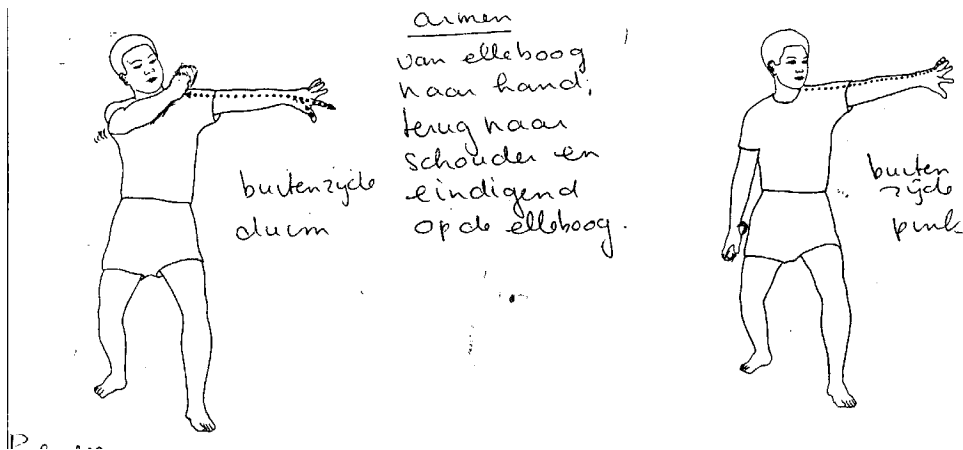 armen
van elleboog
naar hand,
terug naar
schouder en
eindigend
op de elleboog.
buitenzijde
duim
buiten
zijde
pink